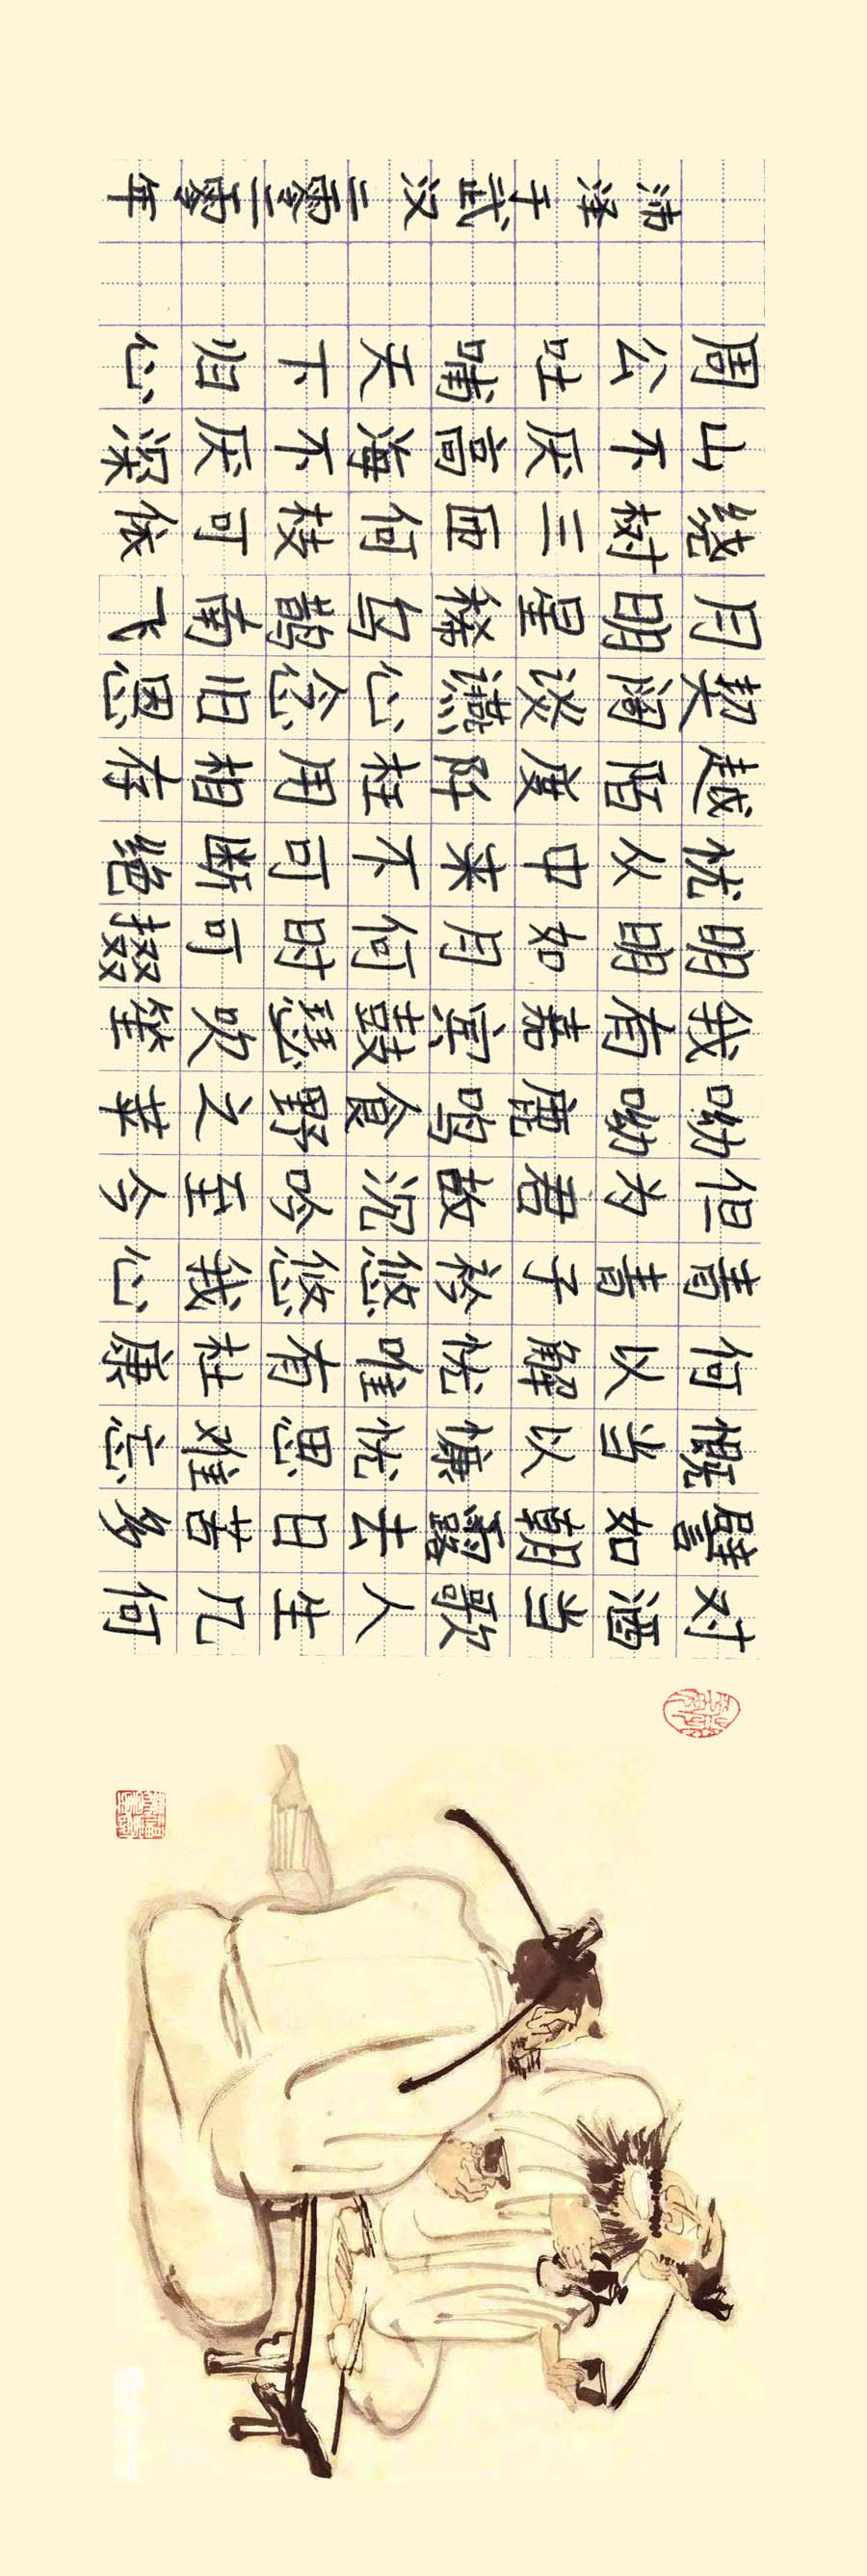 对酒当歌人生几何
譬如朝露去日苦多
慨当以慷忧思难忘
何以解忧唯有杜康
青青子衿悠悠我心
但为君故沉吟至今
呦呦鹿鸣食野之苹
我有嘉宾鼓瑟吹笙
明明如月何时可掇
忧从中来不可断绝
越陌度阡枉用相存
契阔谈讌心念旧恩
月明星稀乌鹊南飞
绕树三匝何枝可依
山不厌高海不厌深
周公吐哺天下归心
沛泽于武汉二零二零年